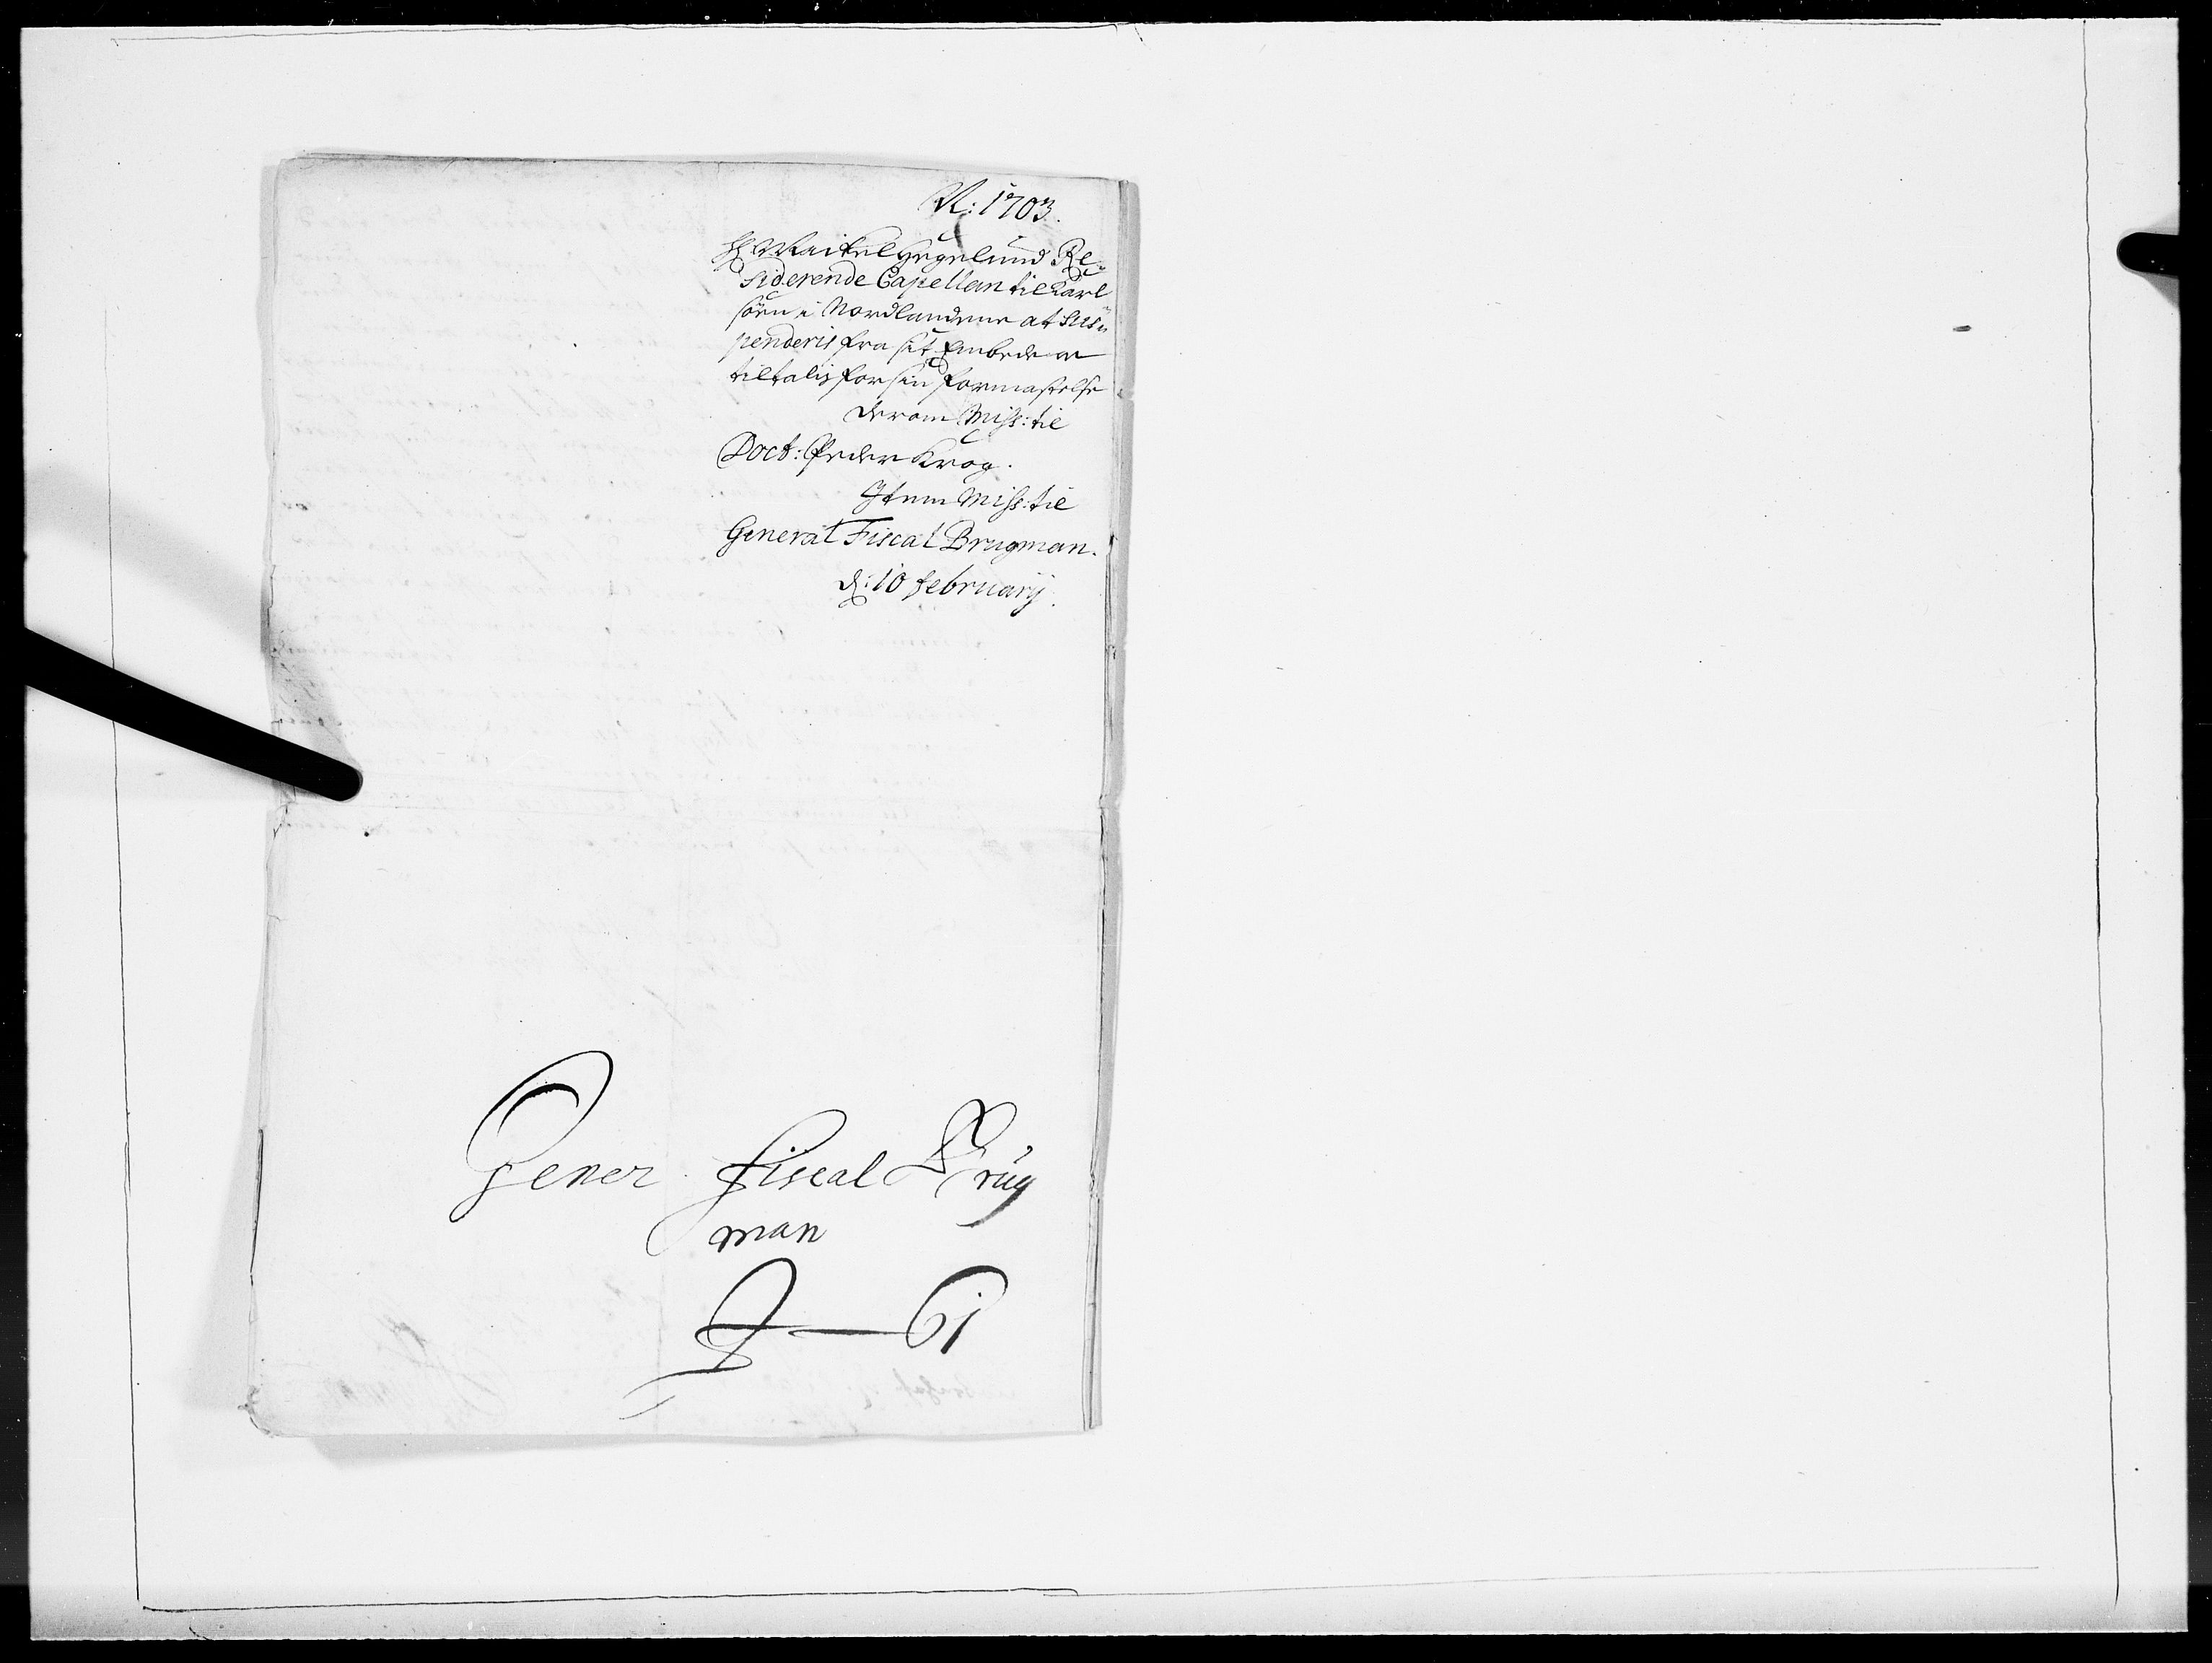 N: 1703.
Hr Maikel Hegelund Re-
siderende Capellan til Karl
söen i Nordlandene at sus-
penderis fra sit Embede oc
tiltalis for sin formastelse
derom Miss: til
Doct: Peder Krog.
Item Miss: til
General Fiscal Brugman.
d: 10 februarij.
Gener. fiscal Brüg
man
61